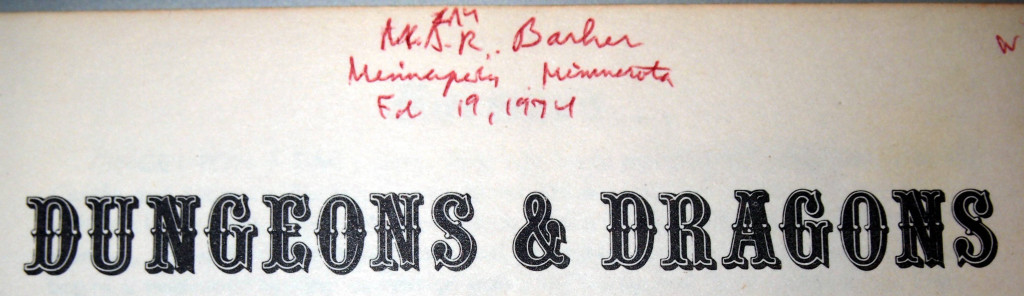 M.A.R. Barker
Minneapolis Minnesota
Feb 19, 1974
DUNGEONS & DRAGONS